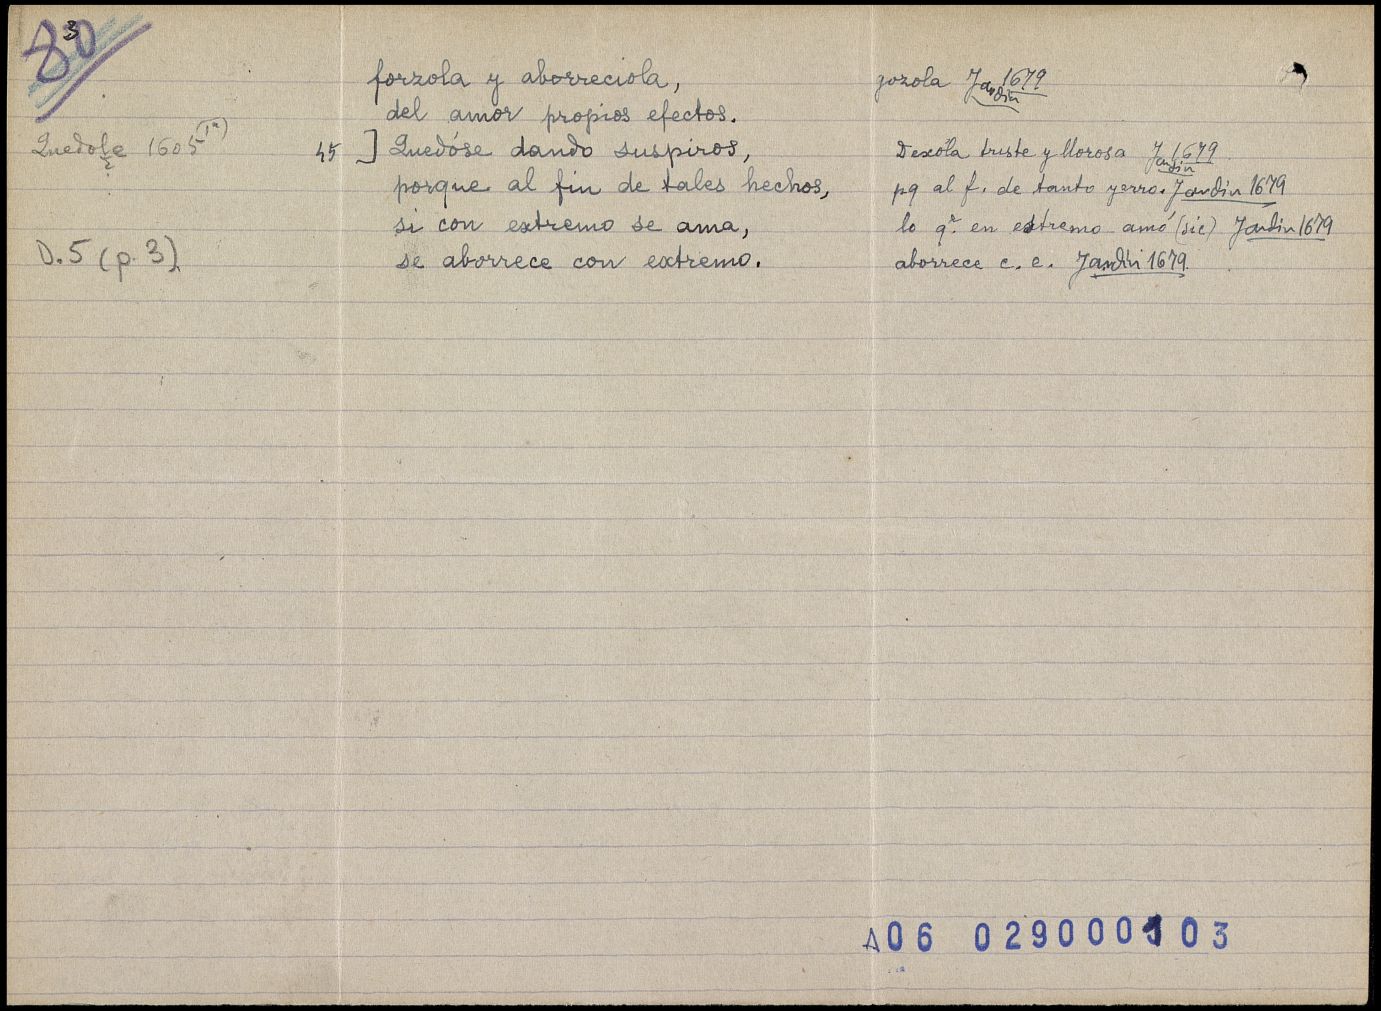 80
3
forzola y aborreciola,
gozola Jardin 1679
del amor propios efectos.
Quedose 1605 (1ª)
45 ] Quedóse dando suspiros,
Dexóla triste y llorosa Jardin 1679
porque al fin de tales hechos,
pq al f. de tanto yerro. Jardin 1679
si con extremo se ama,
lo q.e en estremo amó (sic) Jardin 1679
D.5 (p. 3)
se aborrece con extremo.
aborrece c. e. Jardin 1679
A06 0290001 03